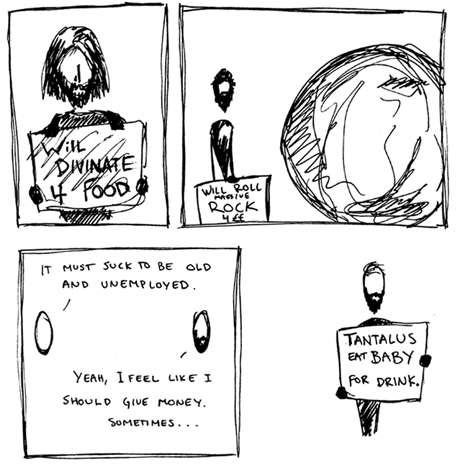 WILL
DIVINATE
4 FOOD
WILL ROLL
MASSIVE
ROCK
4 €€
IT MUST SUCK TO BE OLD
AND UNEMPLOYED.
YEAH, I FEEL LIKE I
SHOULD GIVE MONEY.
SOMETIMES...
TANTALUS
EAT BABY
FOR DRINK.